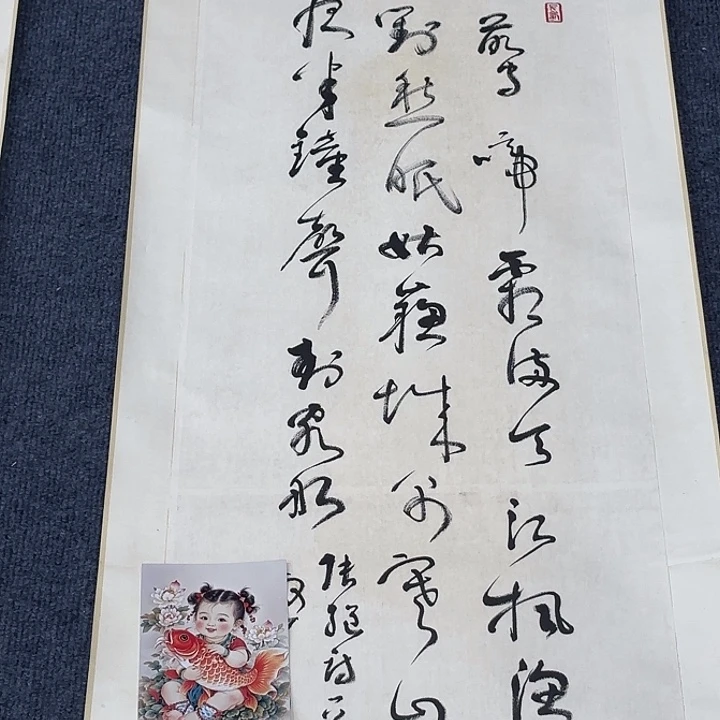 落烏啼霜滿天江楓漁
對愁眠姑蘇城外寒山
夜半鐘聲到客船
張繼詩